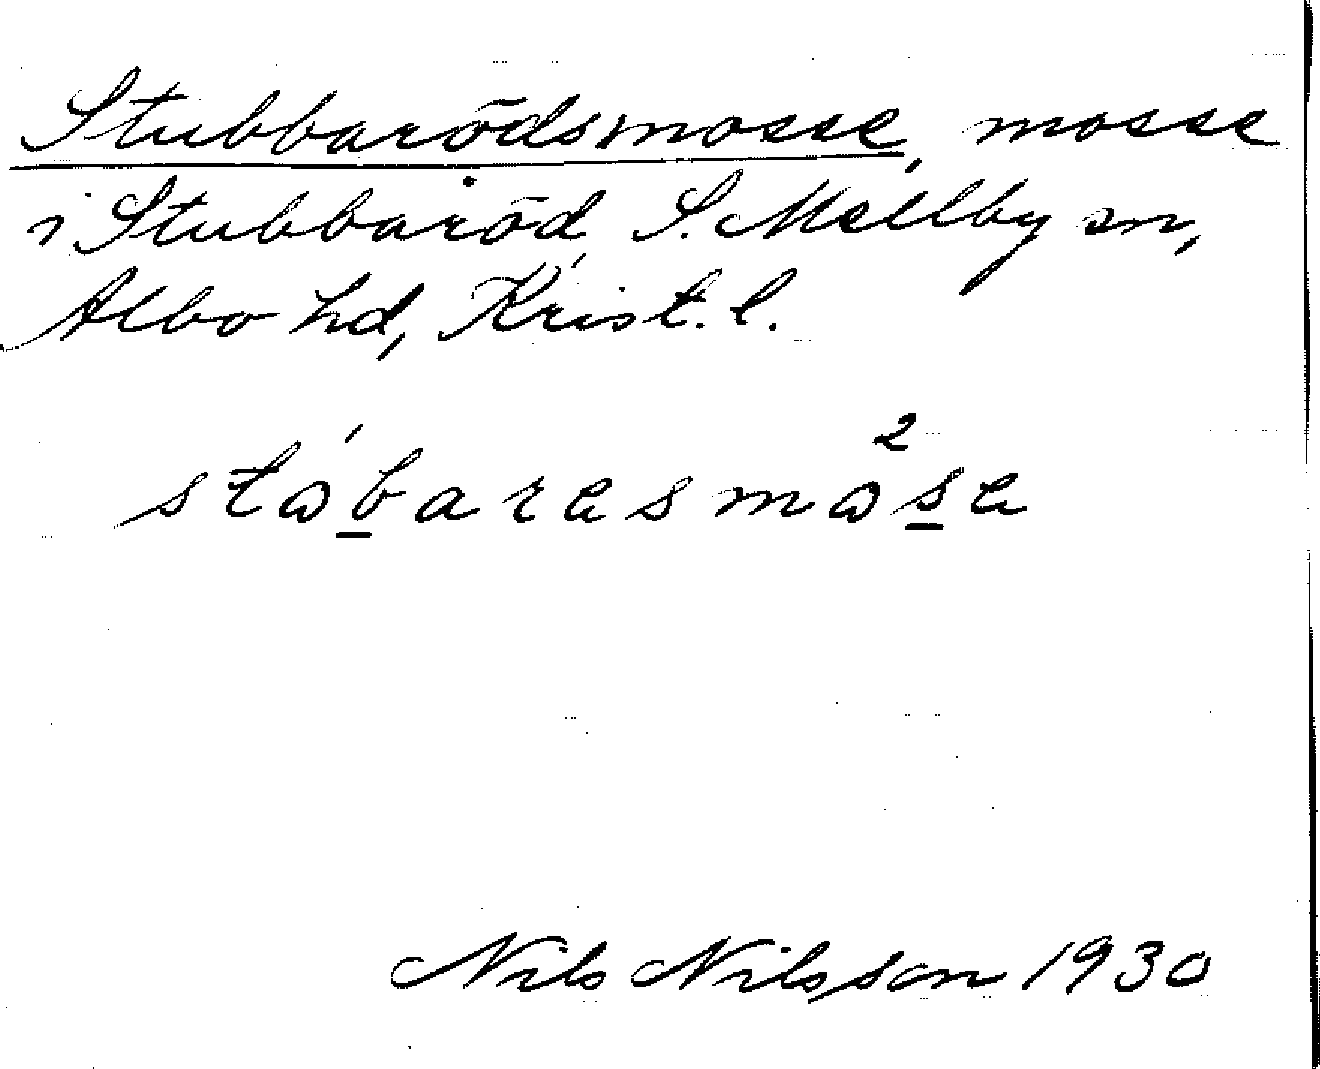 Stubbarödsmosse, mosse
i Stubbaröd, S. Mellby sn,
Albo hd, Krist. l.
stωb́aresmω²se
Nils Nilsson 1930